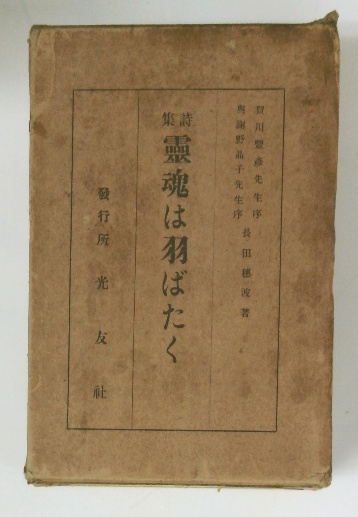 賀川豐彥先生序
與謝野晶子先生序
長田穗波著
詩集
靈魂は羽ばたく
發行所 光友社